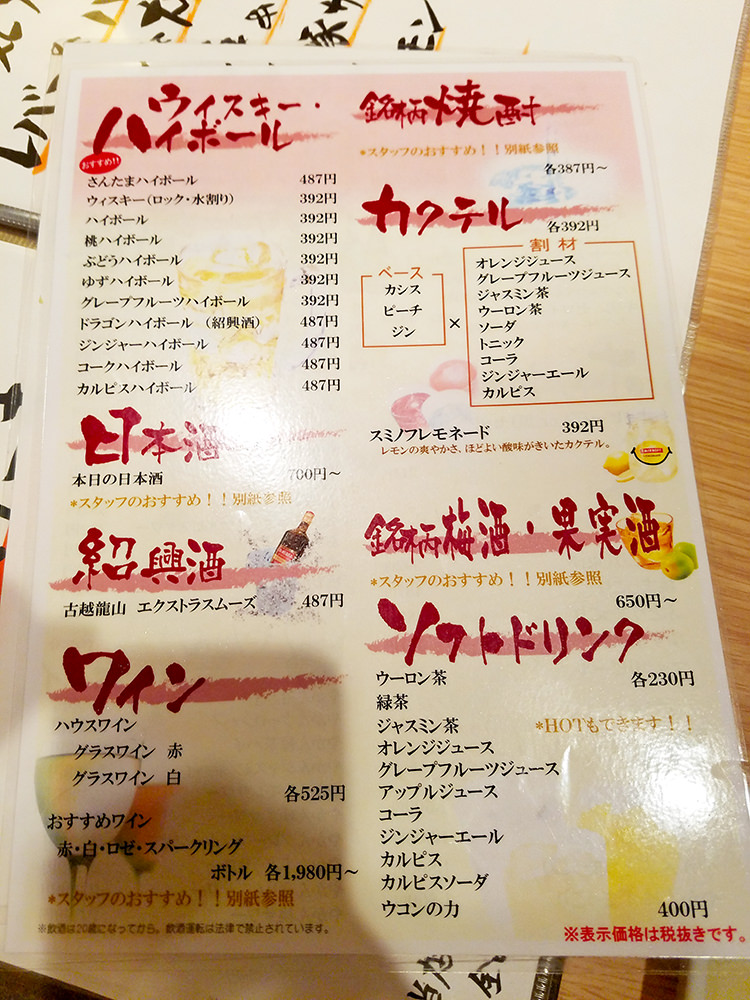 ウィスキー・
ハイボール
おすすめ!!
さんたまハイボール 487円
ウィスキー(ロック・水割り) 392円
ハイボール 392円
桃ハイボール 392円
ぶどうハイボール 392円
ゆずハイボール 392円
グレープフルーツハイボール 392円
ドラゴンハイボール (紹興酒) 487円
ジンジャーハイボール 487円
コークハイボール 487円
カルピスハイボール 487円
日本酒
本日の日本酒 700円~
*スタッフのおすすめ!!別紙参照
紹興酒
古越龍山 エクストラスムーズ 487円
ワイン
ハウスワイン
グラスワイン 赤
グラスワイン 白
各525円
おすすめワイン
赤・白・ロゼ・スパークリング
ボトル 各1,980円~
*スタッフのおすすめ!!別紙参照
※飲酒は20歳になってから。飲酒運転は法律で禁止されています。
銘柄焼酎
*スタッフのおすすめ!!別紙参照
各387円~
カクテル
各392円
ベース
カシス
ピーチ
ジン
×
割材
オレンジジュース
グレープフルーツジュース
ジャスミン茶
ウーロン茶
ソーダ
トニック
コーラ
ジンジャーエール
カルピス
スミノフレモネード 392円
レモンの爽やかさ、ほどよい酸味がきいたカクテル。
銘柄梅酒・果実酒
*スタッフのおすすめ!!別紙参照
650円~
ソフトドリンク
ウーロン茶 各230円
緑茶
ジャスミン茶 *HOTもできます!!
オレンジジュース
グレープフルーツジュース
アップルジュース
コーラ
ジンジャーエール
カルピス
カルピスソーダ
ウコンの力 400円
※表示価格は税抜きです。